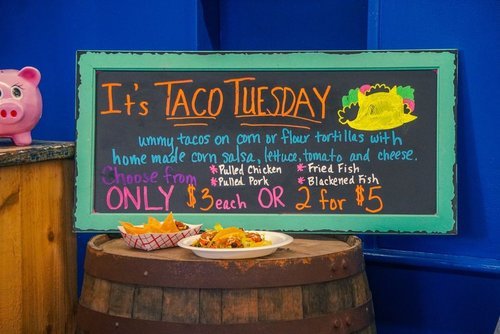 It's TACO TUESDAY
ummy tacos on corn or flour tortillas with
home made corn salsa, lettuce, tomato and cheese.
Choose from *Pulled Chicken *Fried Fish
*Pulled Pork *Blackened Fish
ONLY $3 each OR 2 for $5